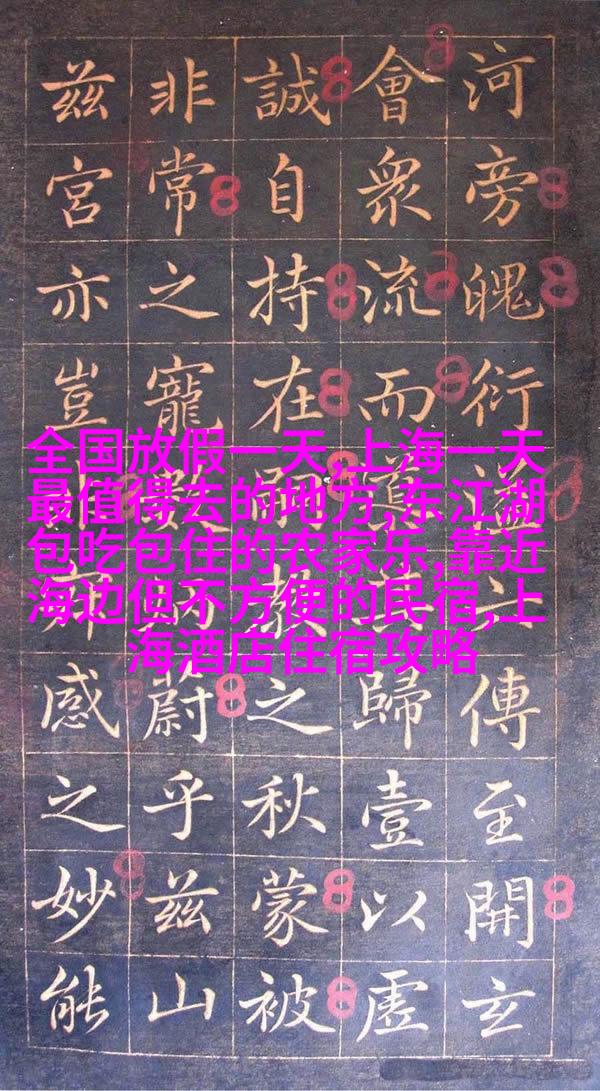 河旁魄衍傳至開玄
會衆流而歸壹以虛
誠自持在教之秋蒙被
非常之寵蔚乎茲山
茲宮亦豈感之妙能
全国放假一天,上海一天
最值得去的地方,东江湖
包吃包住的农家乐,靠近
海边但不方便的民宿,上
海酒店住宿攻略